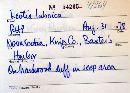 No 34285
Leotia lubrica
Aug. 31 - 78
Nova Scotia, Kings Co., Baxter's
Harbor
On hardwood duff in seep area